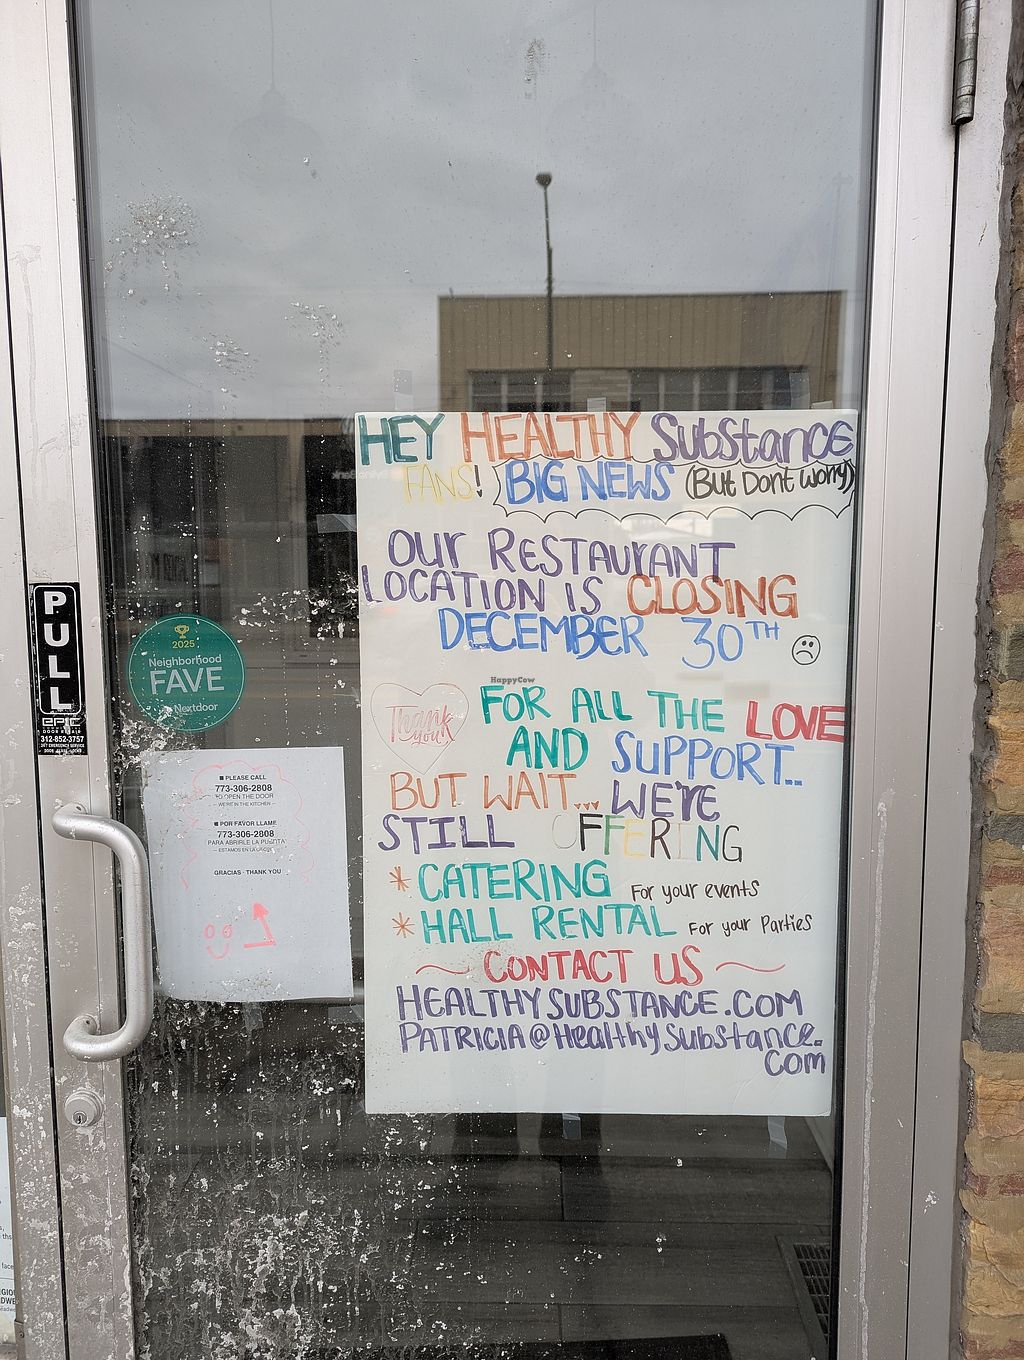 HEY HEALTHY Substance
FANS! BIG NEWS (But Dont worry)
OUr RESTAUrANT
LOCATION IS CLOSING
DECEMBER 30TH
Thank you
FOR ALL THE LOVE
AND SUPPORT..
BUT WAIT... WE'rE
STILL OFFERING
* CATERING For your events
* HALL RENTAL For your Parties
~ CONTACT US ~
HEALTHYSUBSTANCE.COM
PATRICIA@HealthySubstance.
Com
HappyCow
PULL
epic
DOOR REPAIR
312-852-3757
24/7 EMERGENCY SERVICE
2025
Neighborhood
FAVE
Nextdoor
■ PLEASE CALL
773-306-2808
TO OPEN THE DOOR
— WE'RE IN THE KITCHEN —
■ POR FAVOR LLAME
773-306-2808
PARA ABRIRLE LA PUERTA
— ESTAMOS EN LA COCINA —
GRACIAS · THANK YOU